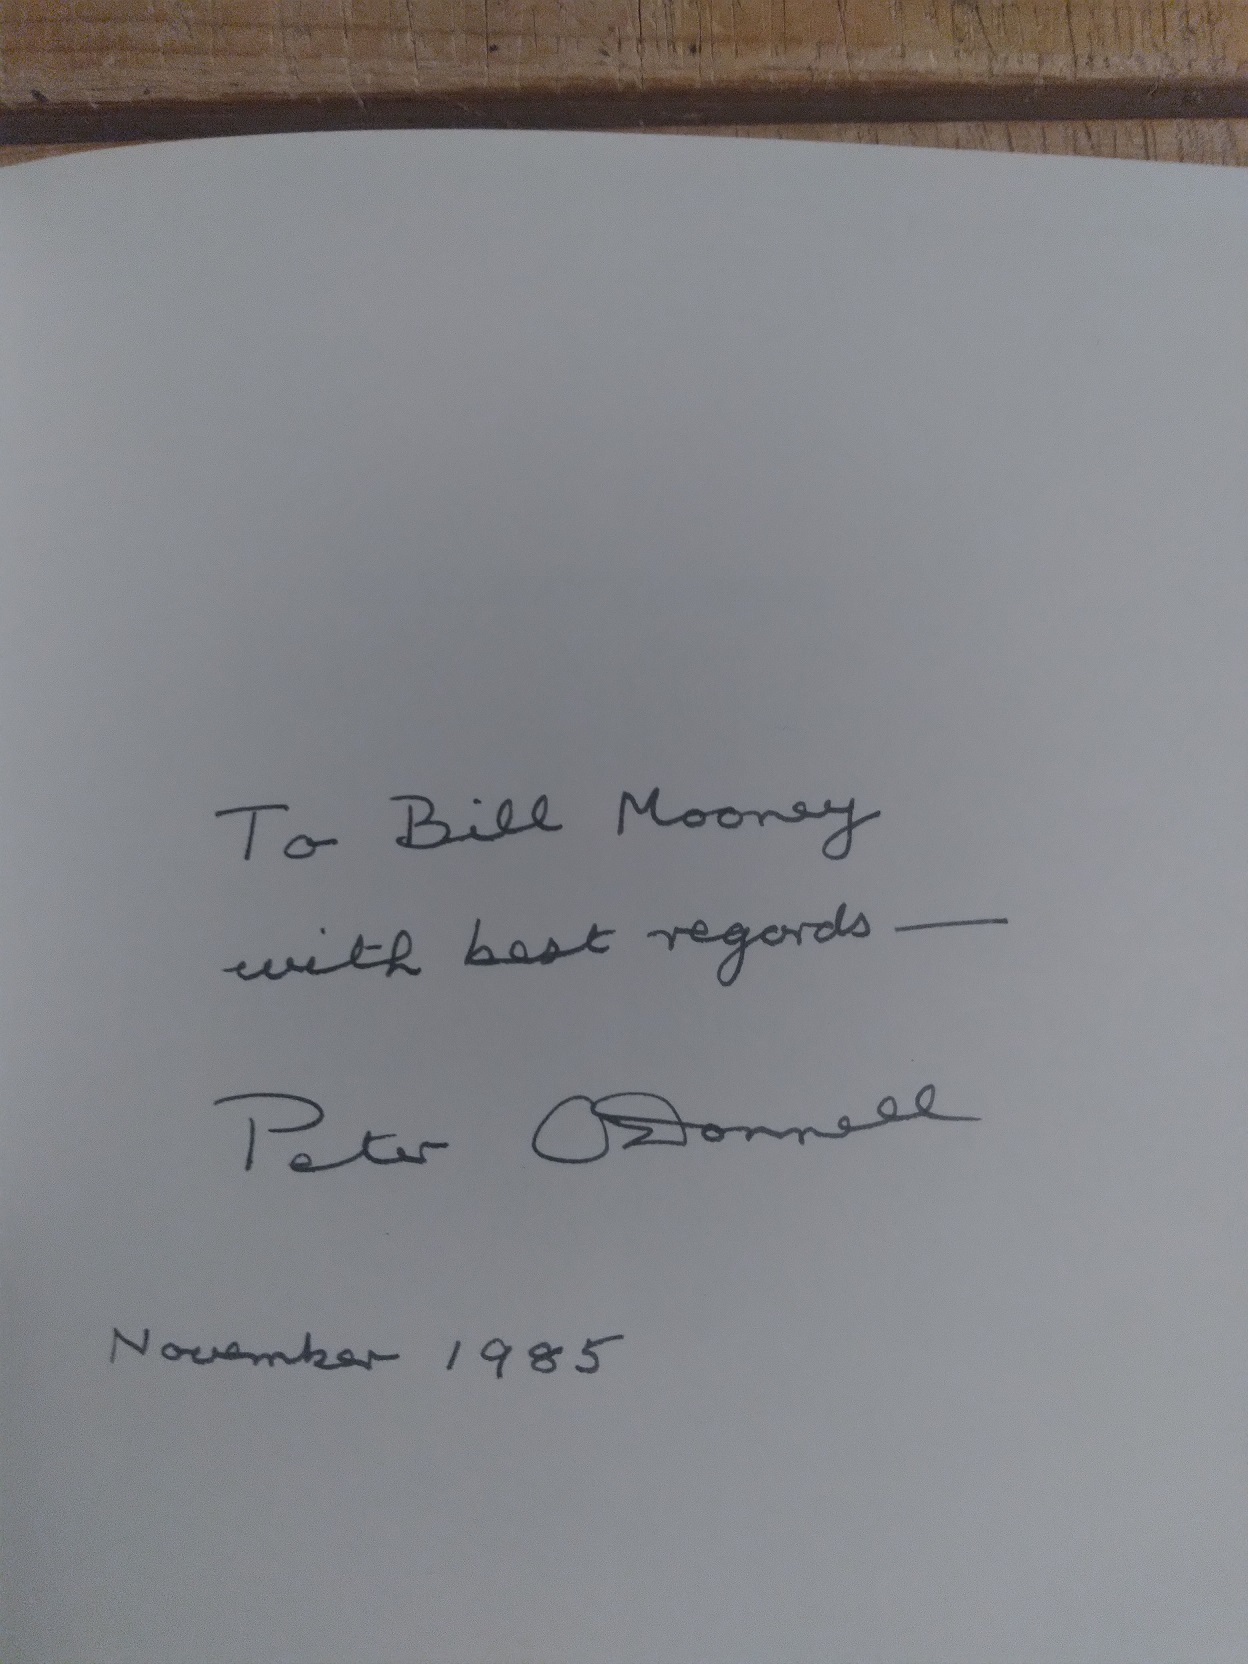 To Bill Mooney
with best regards —
Peter O'Donnell
November 1985